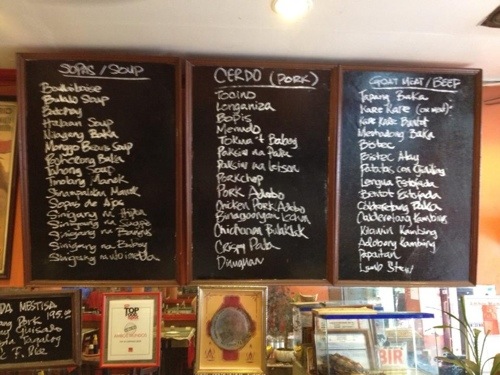 SOPAS / SOUP
Bouillabaise
Bulalo Soup
Batchoy
Halaan Soup
Nilagang Baka
Monggo Beans Soup
Pochero Baka
Tahong Soup
Tinolang Manok
Sinampalukan Manok
Sopas de Ajos
Sinigang na Hipon
Sinigang na
Sinigang na Bangus
Sinigang na Baboy
Sinigang na
CERDO (PORK)
Tocino
Longaniza
Bopis
Menudo
Tokwa't Baboy
Paksiw na Pata
Paksiw na Letson
Porkchop
Pork Adobo
Chicken Pork Adobo
Binagoongan
Chicharon Bulaklak
Crispy Pata
Dinuguan
GOAT MEAT / BEEF
Tapang Baka
Kare Kare (ox
Kare Kare Buntot
Mechadong Baka
Bistec
Bistec Atay
Patatas con Giniling
Lengua Estofada
Buntot Estofada
Calderetang Baka
Calderetang Kambing
Kilawin Kambing
Adobong Kambing
Papaitan
Lamb Stew
MESTISA
195.00
Pork
Guisado
& F. Rice
TOP
BIR